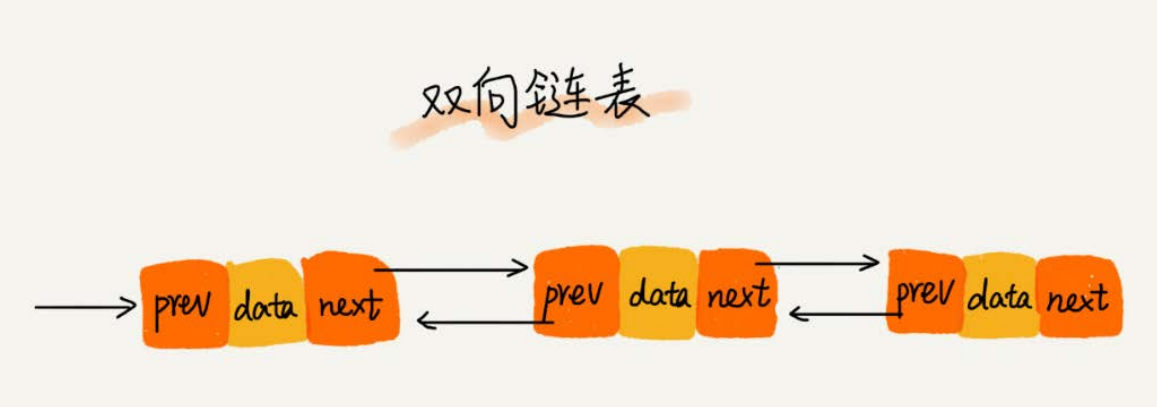 双向链表
prev data next prev data next prev data next